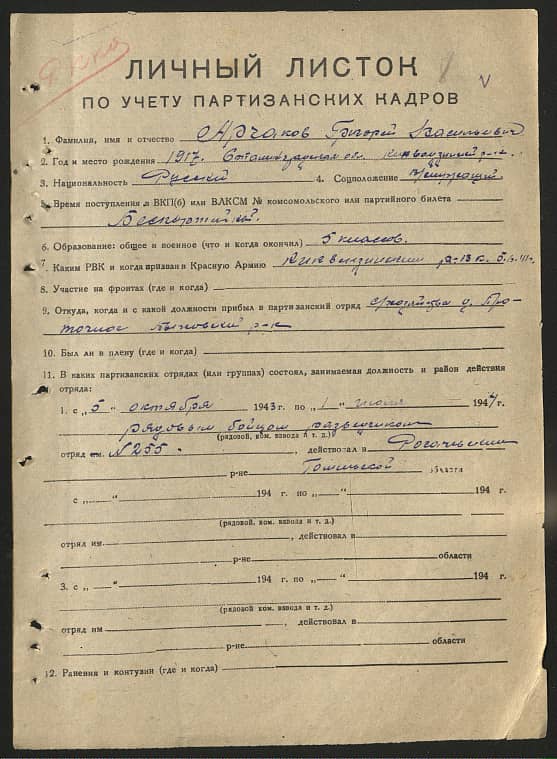 ЛИЧНЫЙ ЛИСТОК
ПО УЧЕТУ ПАРТИЗАНСКИХ КАДРОВ
1. Фамилия, имя и отчество Арчаков Григорий Васильевич
2. Год и место рождения 1917г. Сталинградская об.
3. Национальность Русский 4. Соцположение Служащий
5. Время поступления в ВКП(б) или ВЛКСМ № комсомольского или партийного билета
Беспартийный.
6. Образование: общее и военное (что и когда окончил) 5 классов.
7. Каким РВК и когда призван в Красную Армию
8. Участие на фронтах (где и когда)
9. Откуда, когда и с какой должности прибыл в партизанский отряд
Быховский р-н
10. Был ли в плену (где и когда)
11. В каких партизанских отрядах (или группах) состоял, занимаемая должность и район действия
отряда:
1. с „5“ октября 1943 г. по „1“ июля 1944 г.
рядовым бойцом разведчиком
(рядовой, ком. взвода и т. д.)
отряд им. №255. , действовал в Рогачевском
р-не Гомельской области
с „ “ 194 г. по „ “ 194 г.
(рядовой, ком. взвода и т. д.)
отряд им. , действовал в
р-не области
3. с „ “ 194 г. по „ “ 194 г.
(рядовой, ком. взвода и т. д.)
отряд им , действовал в
р-не области
12. Ранения и контузии (где и когда)